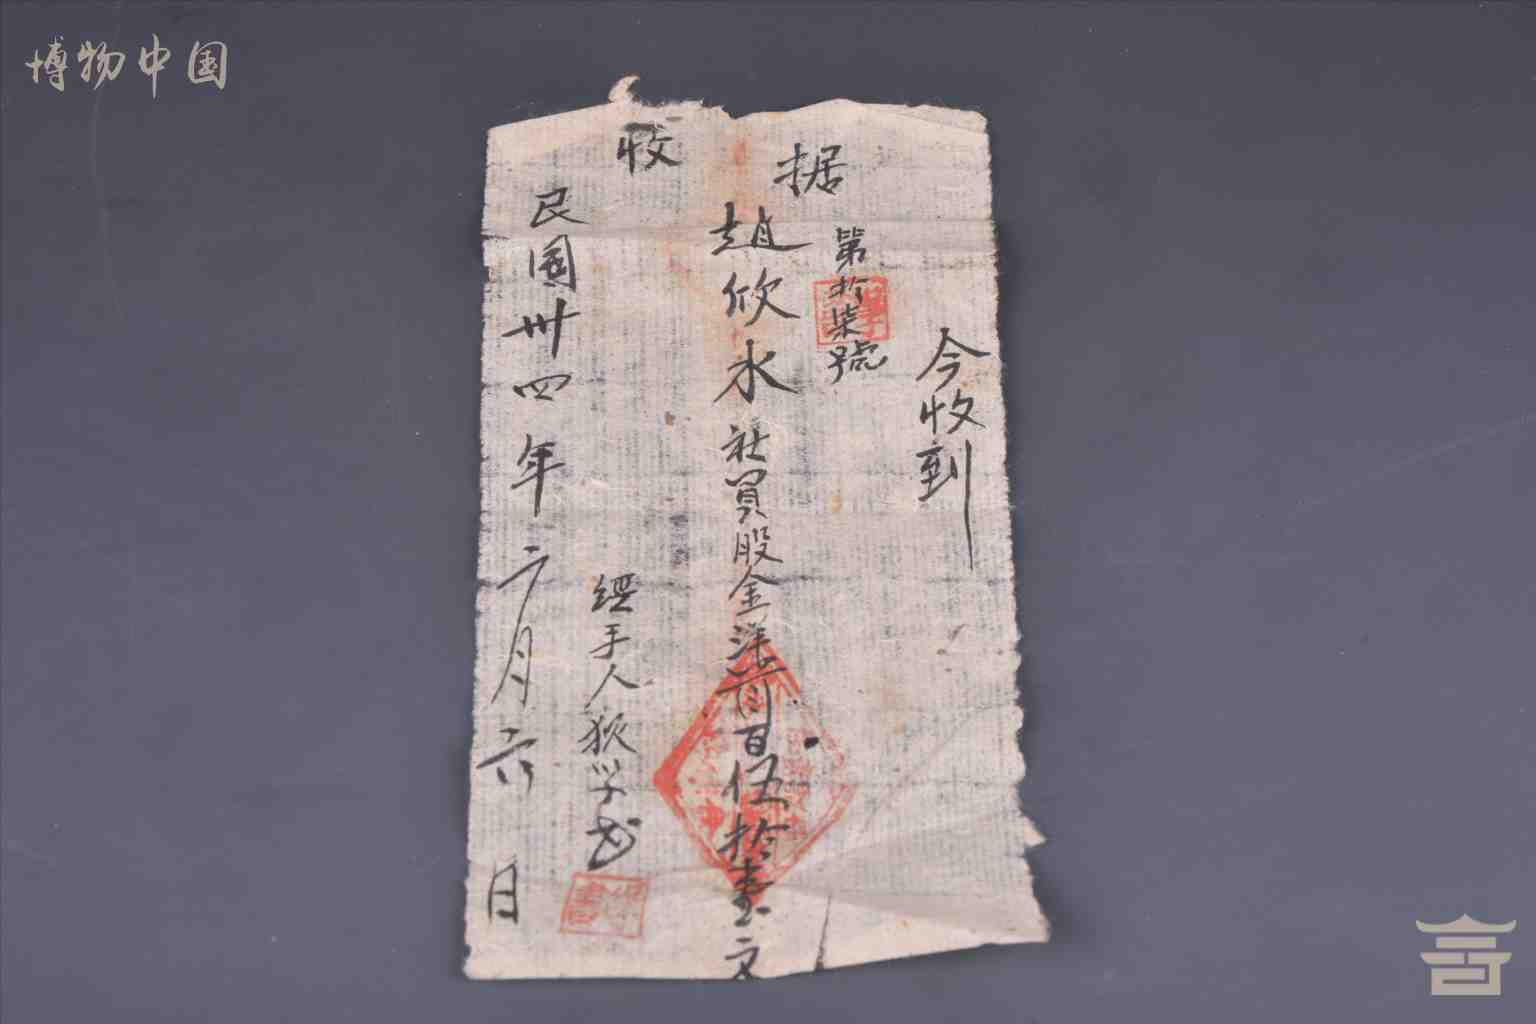 博物中国
收据
第拾柒號
今收到
趙欣水社員股金洋柒百伍拾壹文
經手人狄学书
民國卅四年二月六日